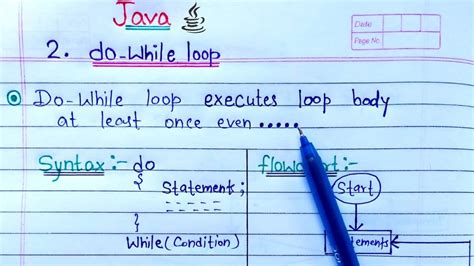 Java
Date
Page No.
2. do-while loop
Do-While loop executes loop body
at least once even.....
Syntax :- do
{
Statements;
}
While(Condition)
:-
Start